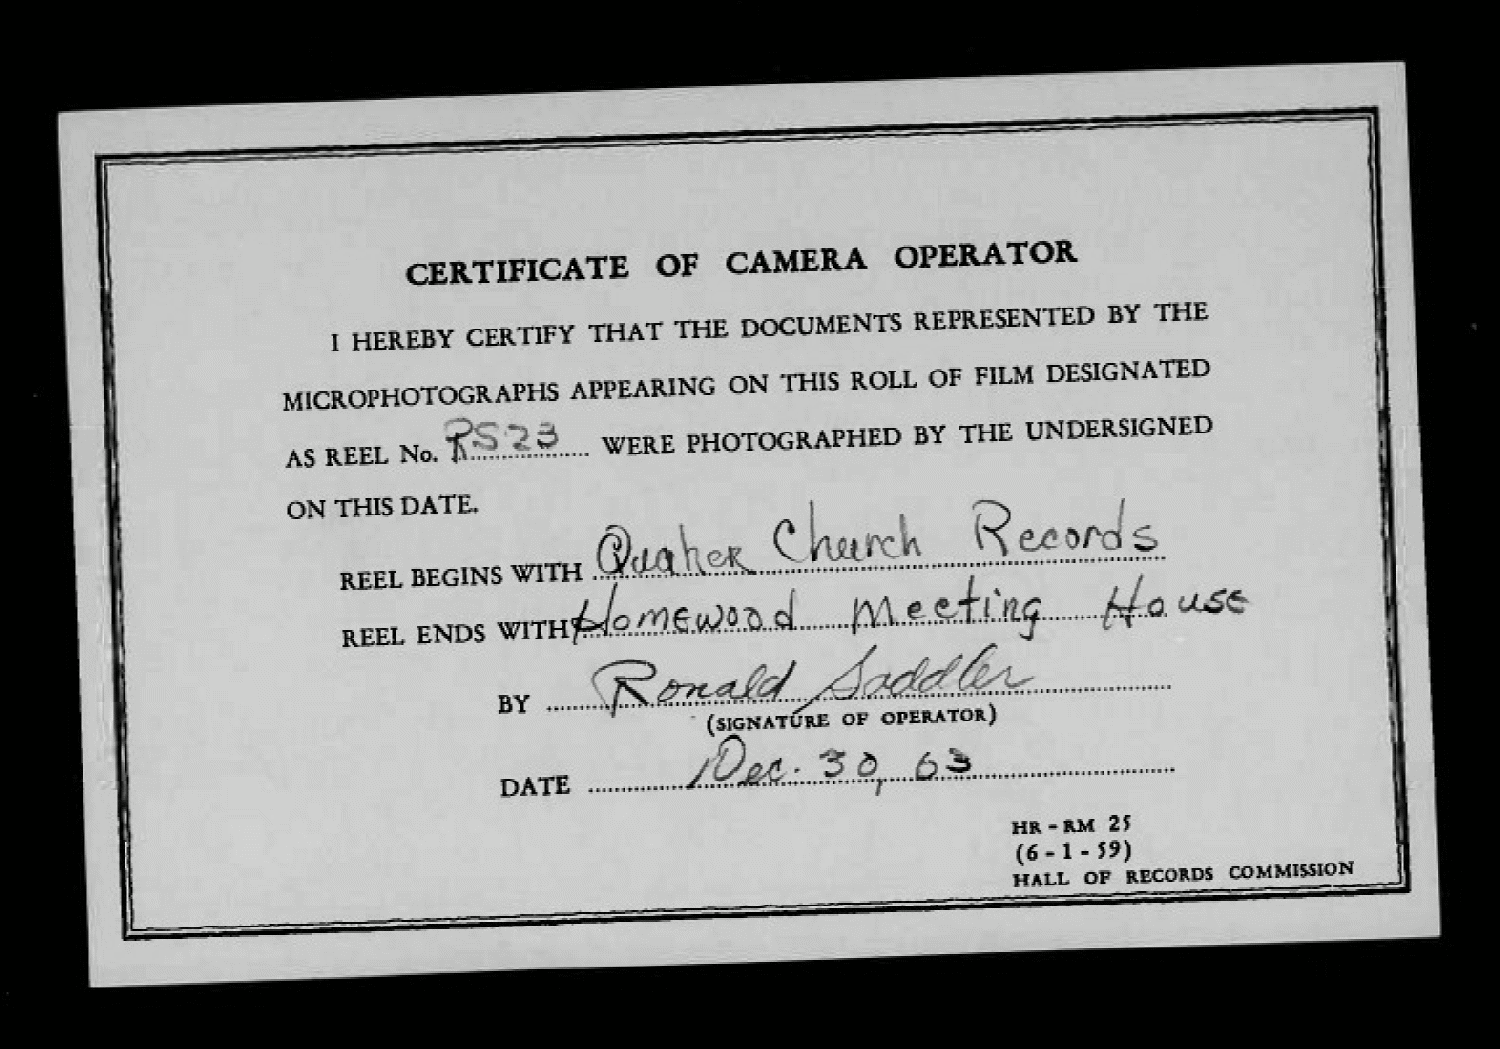 CERTIFICATE OF CAMERA OPERATOR
I HEREBY CERTIFY THAT THE DOCUMENTS REPRESENTED BY THE
MICROPHOTOGRAPHS APPEARING ON THIS ROLL OF FILM DESIGNATED
AS REEL No. RS23 WERE PHOTOGRAPHED BY THE UNDERSIGNED
ON THIS DATE.
REEL BEGINS WITH Quaker Church Records
REEL ENDS WITH Homewood Meeting House
BY Ronald Saddler
(SIGNATURE OF OPERATOR)
DATE Dec. 30, 63
HR - RM 25
(6 - 1 - 59)
HALL OF RECORDS COMMISSION